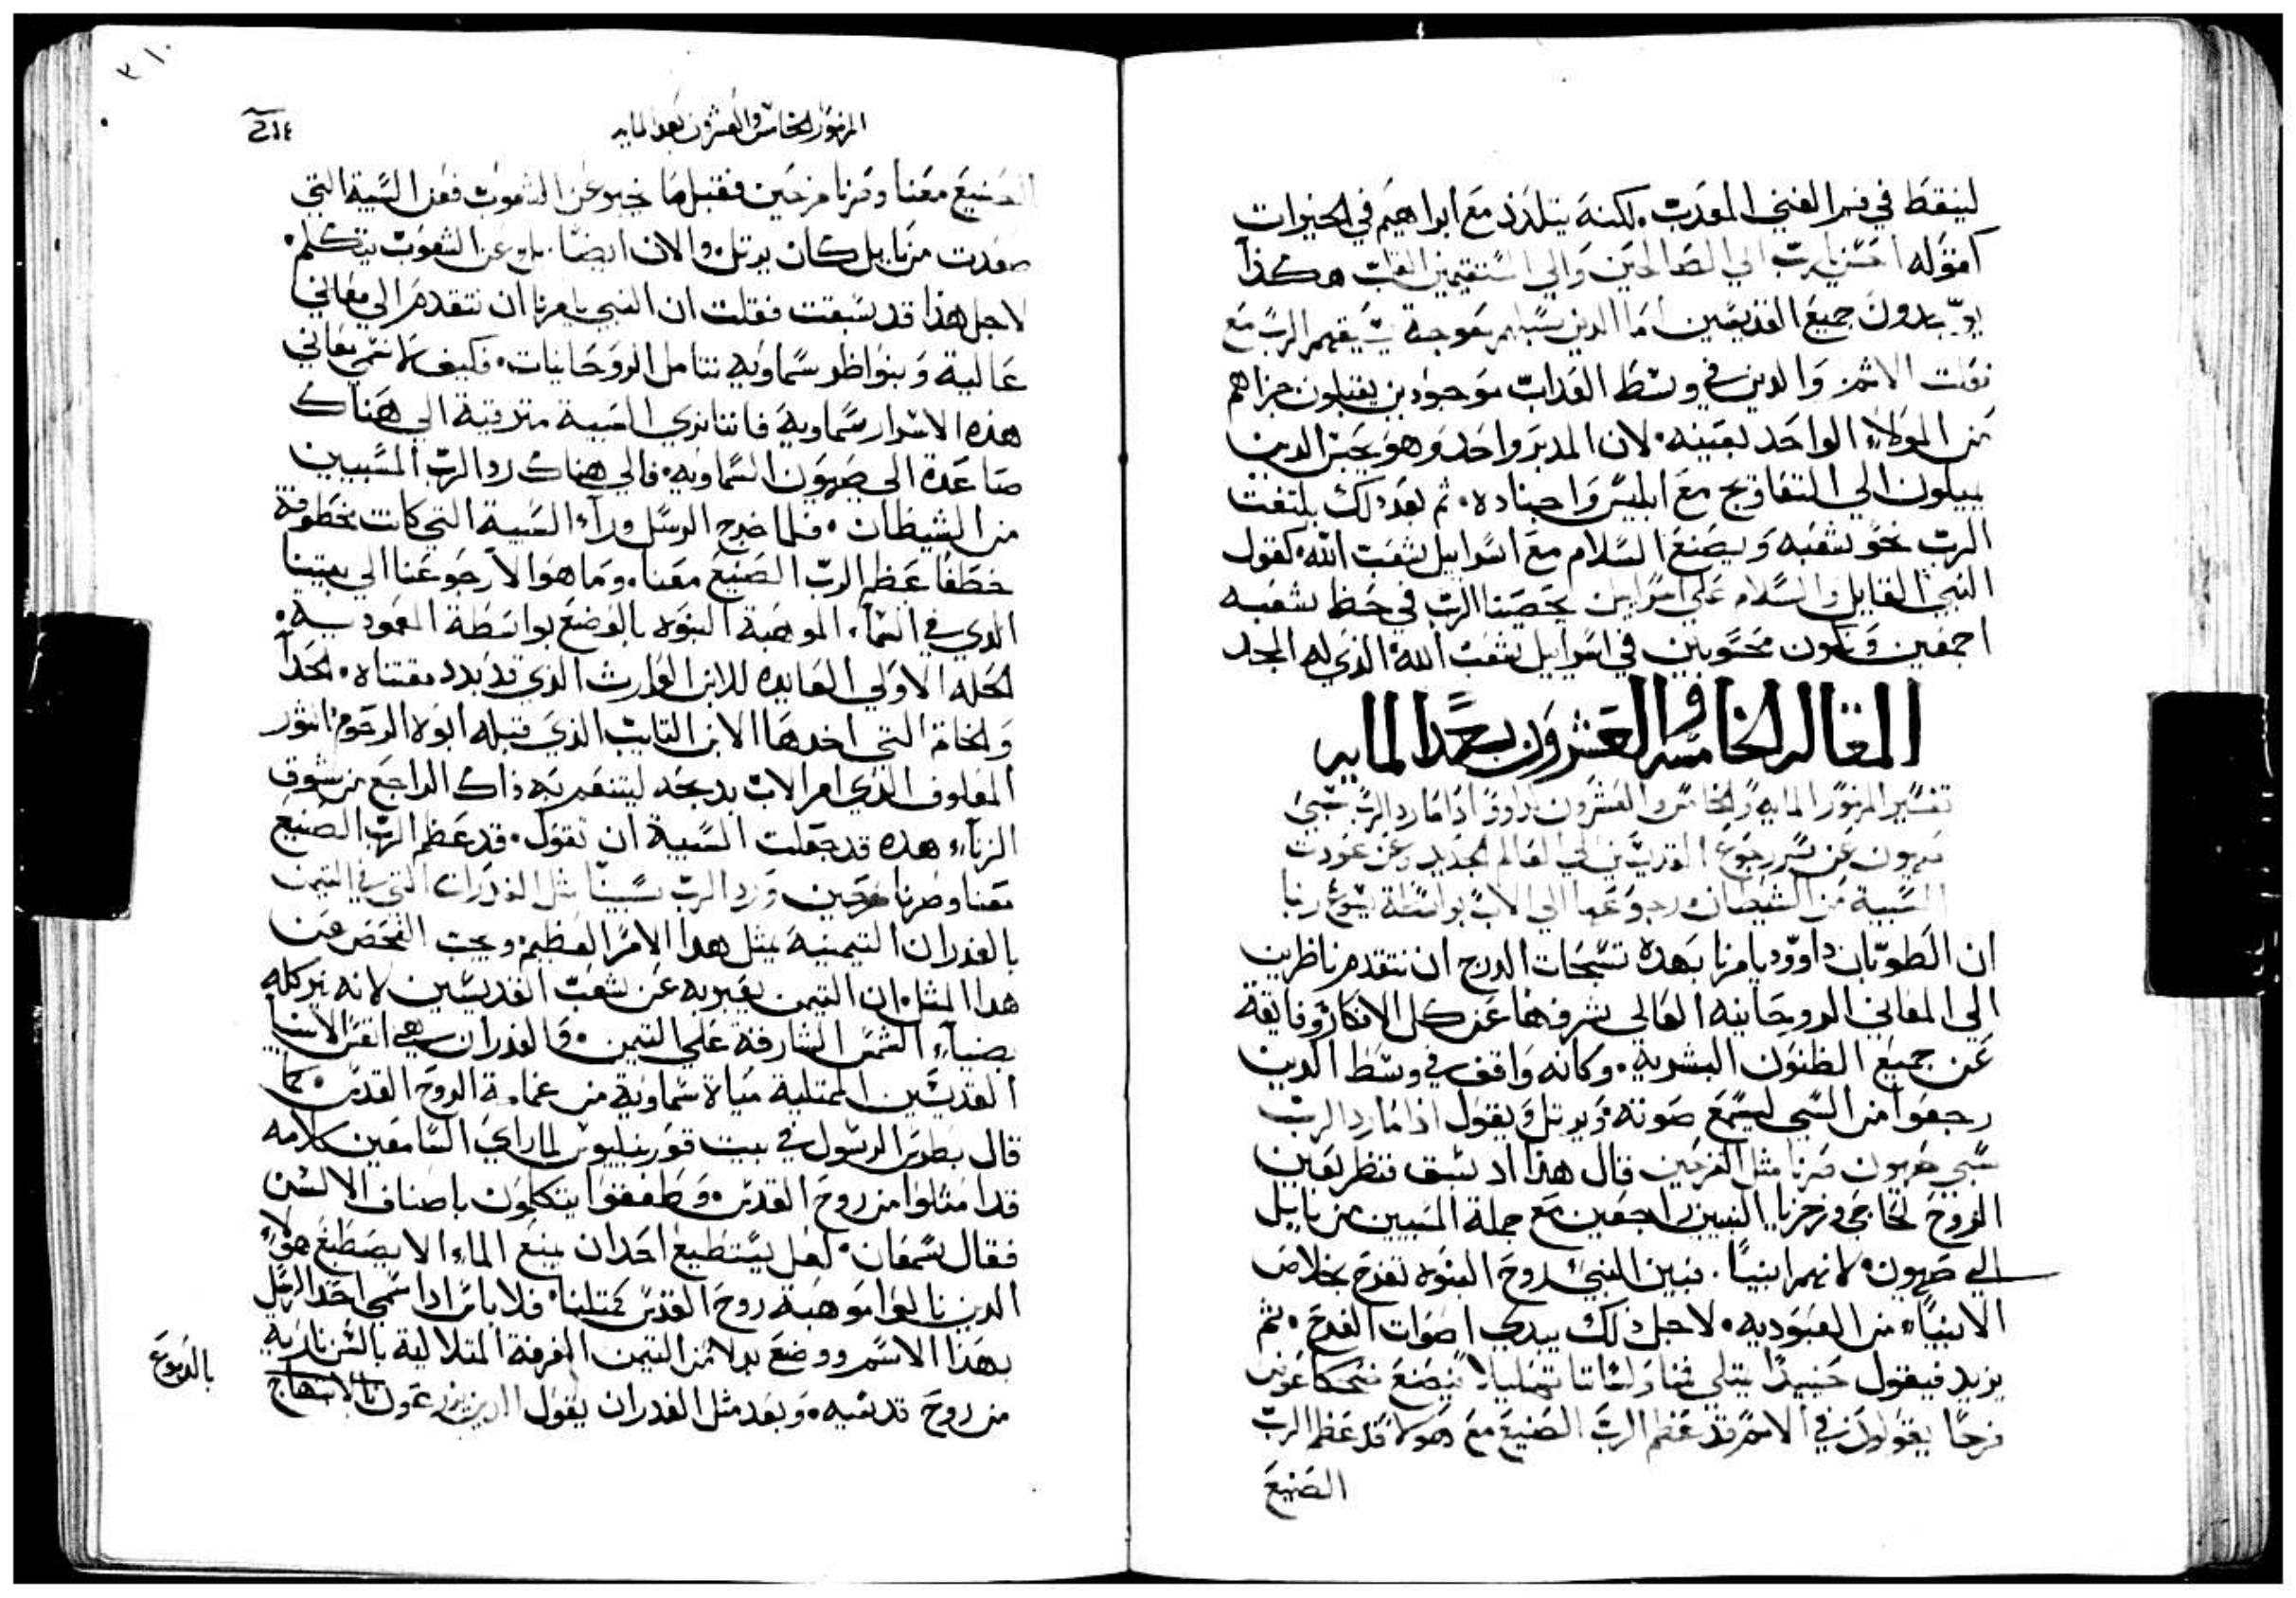 لينقط في فم الغني المعدب. لكنه يتلذذ مع ابراهيم في الخيرات
كقوله احسن يارب الي الصالحين والي المستقيمين القلب هكذا
بدون جميع القديسين اما الدين سبلهم معوجة يسيقهم الرب مع
فعلت الاثم والدين في وسط العداب موجودين يقبلون جزاهم
من المولاء الواحد بعينه. لان المدبر واحد وهو يحبس الدين
يميلون الي التعاويج مع ابليس واجناده. ثم بعد دلك يلتفت
الرب نحو شعبه ويصنع السلام مع اسراييل شعب الله كقول
النبي القايل والسلام علي اسراييل يحصينا الرب في حظ شعبه
اجمعين ونكون محسوبين في اسراييل شعب الله الذي له المجد
المقاله الخامسه والعشرون بعد المايه
تفسير المزمور المايه والخامس والعشرون لداوود اداما رد الرب سبي
صهيون عن سر رجوع القديسين الي العالم الجديد وعن عودت
السبية من الشيطان ورجوعها الي الاب بواسطة يسوع ربنا
ان الطوبان داوود يامرنا بهده تسبحات الدرج ان نتقدم ناظرين
الي المعاني الروحانيه العالي شرفها عن كل الافكار وفايقة
عن جميع الظنون البشريه. وكانه واقف في وسط الدين
رجعوا من السبي ليسمع صوته ويرتل ويقول اذاما رد الرب
سبي صهيون صرنا مثل الفرحين قال هذا اد سبق فنظر بعين
الروح لخاجي وزخريا النبيين راجعين مع جملة المسبيين من بابل
الي صهيون لانهم انبيا. فبين النبي روح النبوه تفرح بخلاص
الانبياء من العبوديه. لاجل دلك يبدي اصوات الفرح. ثم
يزيد فيقول حينيدا يمتلي فمنا ولساننا تهليلا فيصنع ضحكا عوض
فرحا يقولون في الامم قد عظم الرب الصنيع مع هولا قد عظم الرب
الصنيع
المزمور الخامس والعشرون بعد المايه
الصنيع معنا وصرنا فرحين فقبل ما نخبر عن الشعوب فعن السبية التي
صعدت من بابل كان يرتل. والان ايضا عن الشعوب يتكلم.
لاجل هذا قد سبقت فقلت ان النبي يامرنا ان نتقدم الي معاني
عالية وبنواظر سماويه نتامل الروحانيات. فكيف لا نتم معاني
هذه الاسرار سماوية فاننا نري السبية مترقية الي هناك
صاعدة الي صهيون السماويه. فالي هناك رد الرب المسبيين
من الشيطان. فلما خرج الرسل وراء السبية التي كانت مخطوفة
خطفا عظم الرب الصنيع معنا. وما هو الا رجوعنا الي بيتنا
الدي في السماء. الموهبة البنوه بالوضع بواسطة المعموديه.
الحله الاولي العايده للابن الوارث الذي قد بدد مقتناه. الحدا
والخاتم التي اخدها الابن التايب الذي قبله ابوه الرحوم الثور
المعلوف الذي امر الاب بدبحه ليتنعم به ذاك الراجع من سوق
الزناء هده قد جعلت السبية ان تقول. قد عظم الرب الصنيع
معنا وصرنا فرحين ورد الرب سبينا مثل الغدران التي في التيمن
بالغدران التيمنية مثل هدا الامر العظيم. ويجب الفحص عن
هدا المثل ان التيمن يعبر به عن شعب القديسين لانه نير كله
بضياء الشمس الشارقة علي التيمن. والغدران هي انفس الانبيا
القديسين الممتلية مياة سماوية من غمامة الروح القدس. كما
قال بطرس الرسول في بيت قورنيليوس لما راي السامعين كلامه
قد امتلوا من روح القدس وطفقوا يتكلون باصناف الالسن
فقال سمعان. لعل يستطيع احدان يمنع الماء الا يصطبغ هولاء
الدين نالوا موهبة روح القدس كمتلنا. فلا باس ادا سمي احد الرسل
بهذا الاسم ووضع بدلا من التيمن الغرفة المتلالية بالسن ناريه
من روح قدسيه. وبعد مثل الغدران يقول الدين يزرعون بالابتهاج
بالدموع